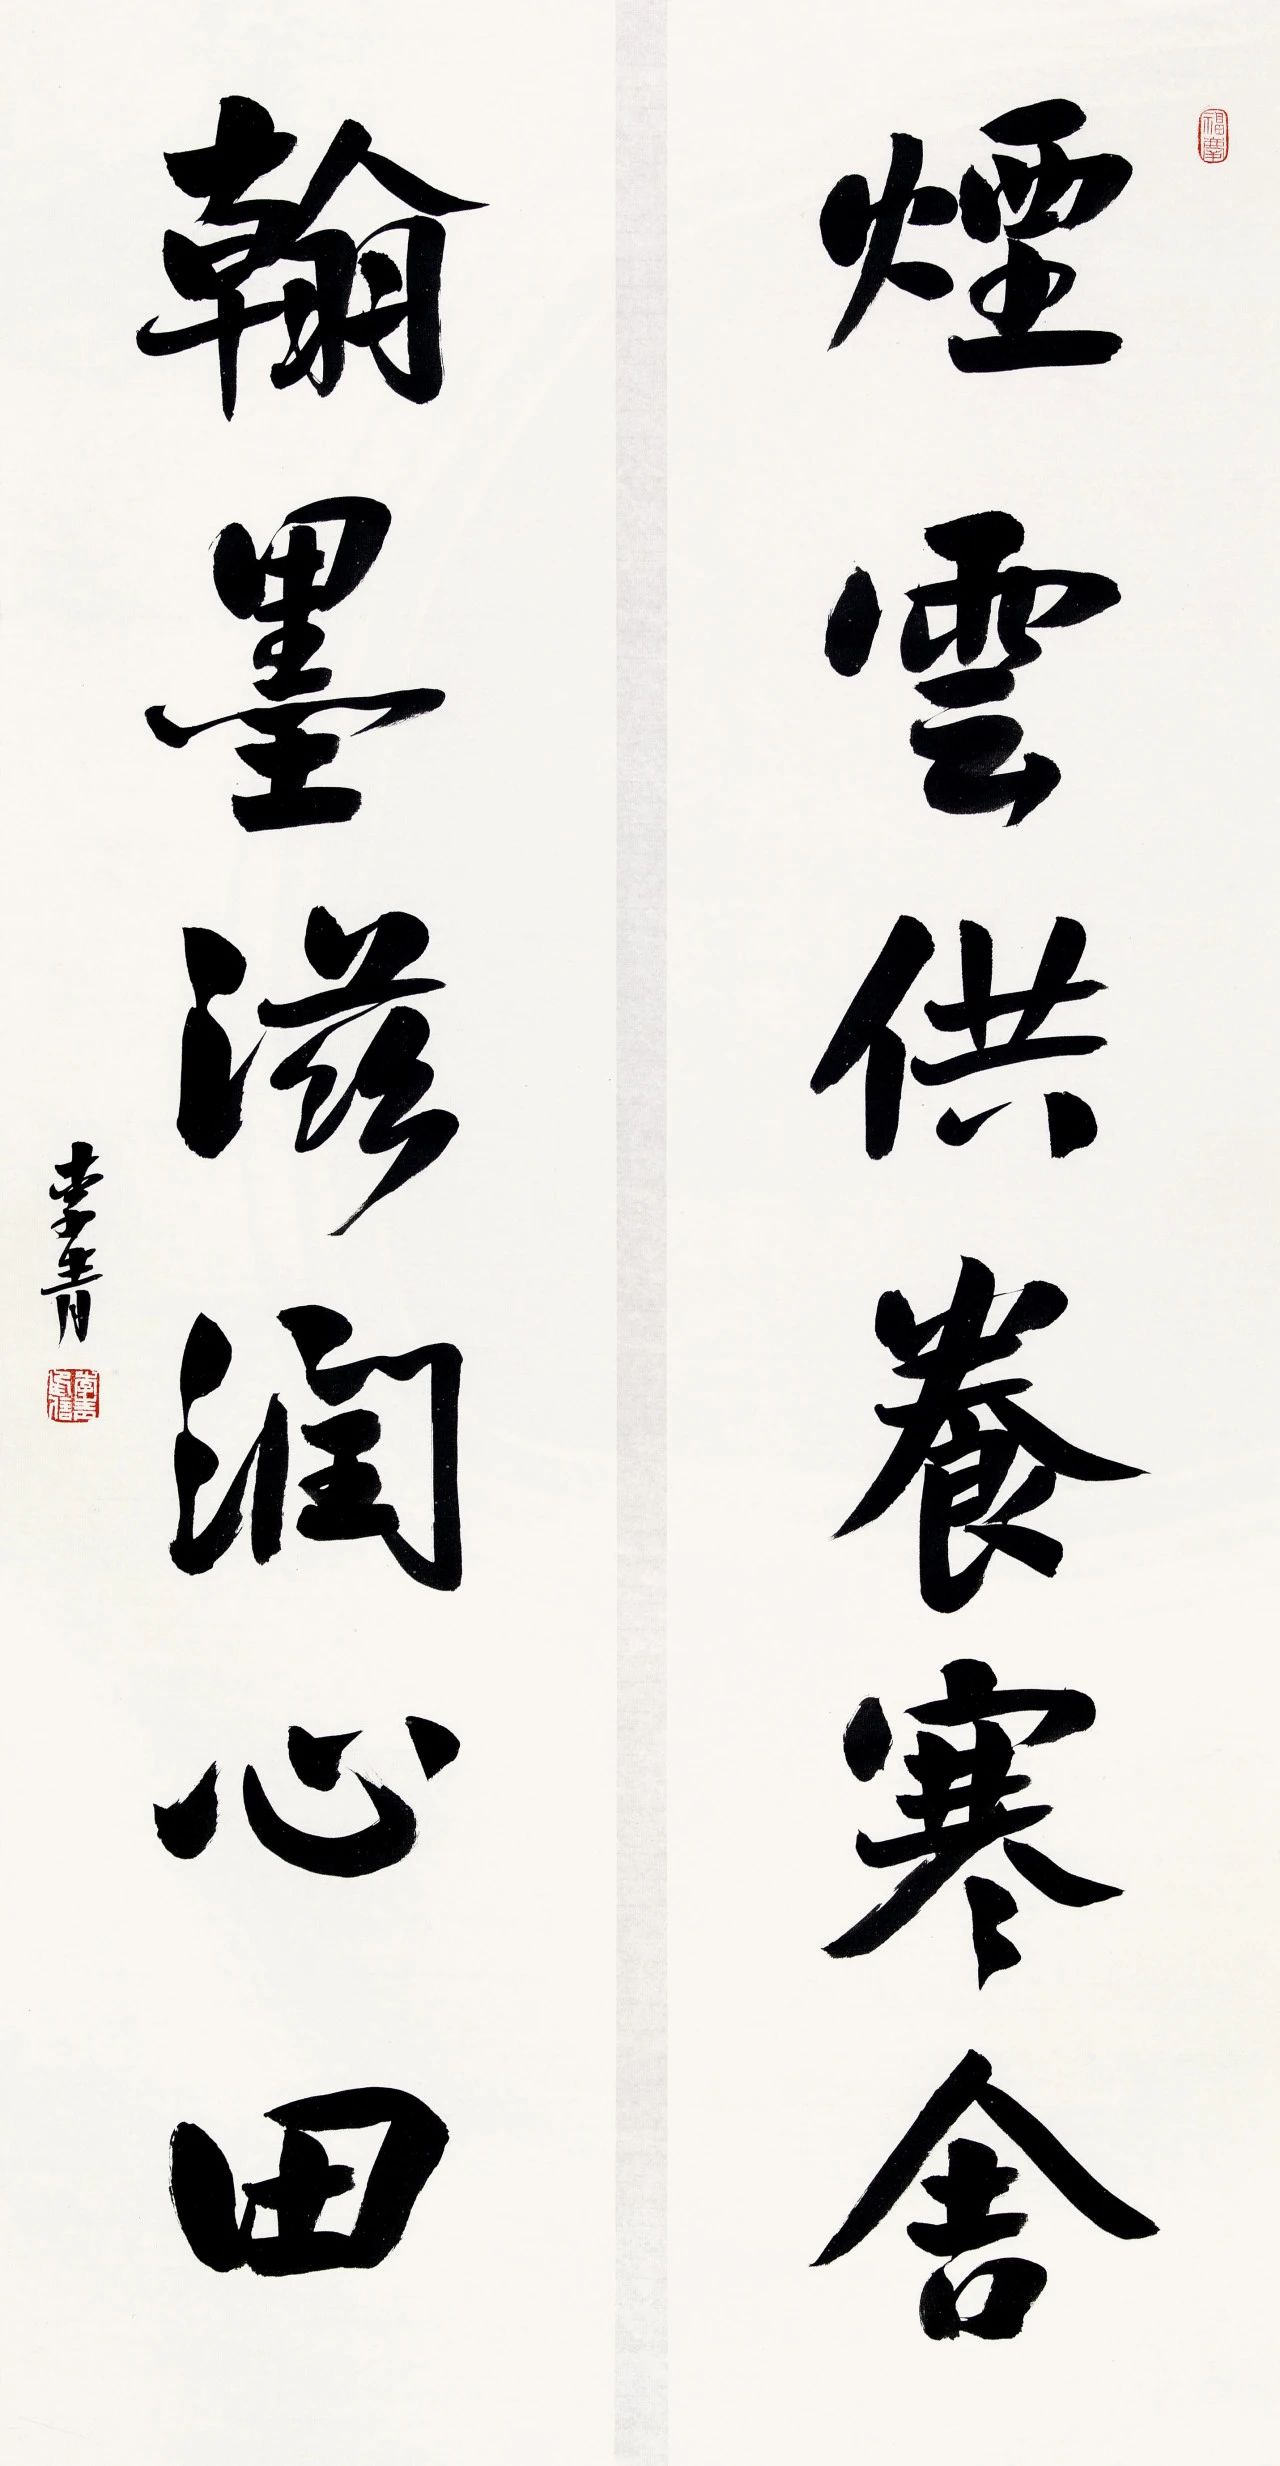 煙雲供養寒舍
翰墨滋潤心田
李青